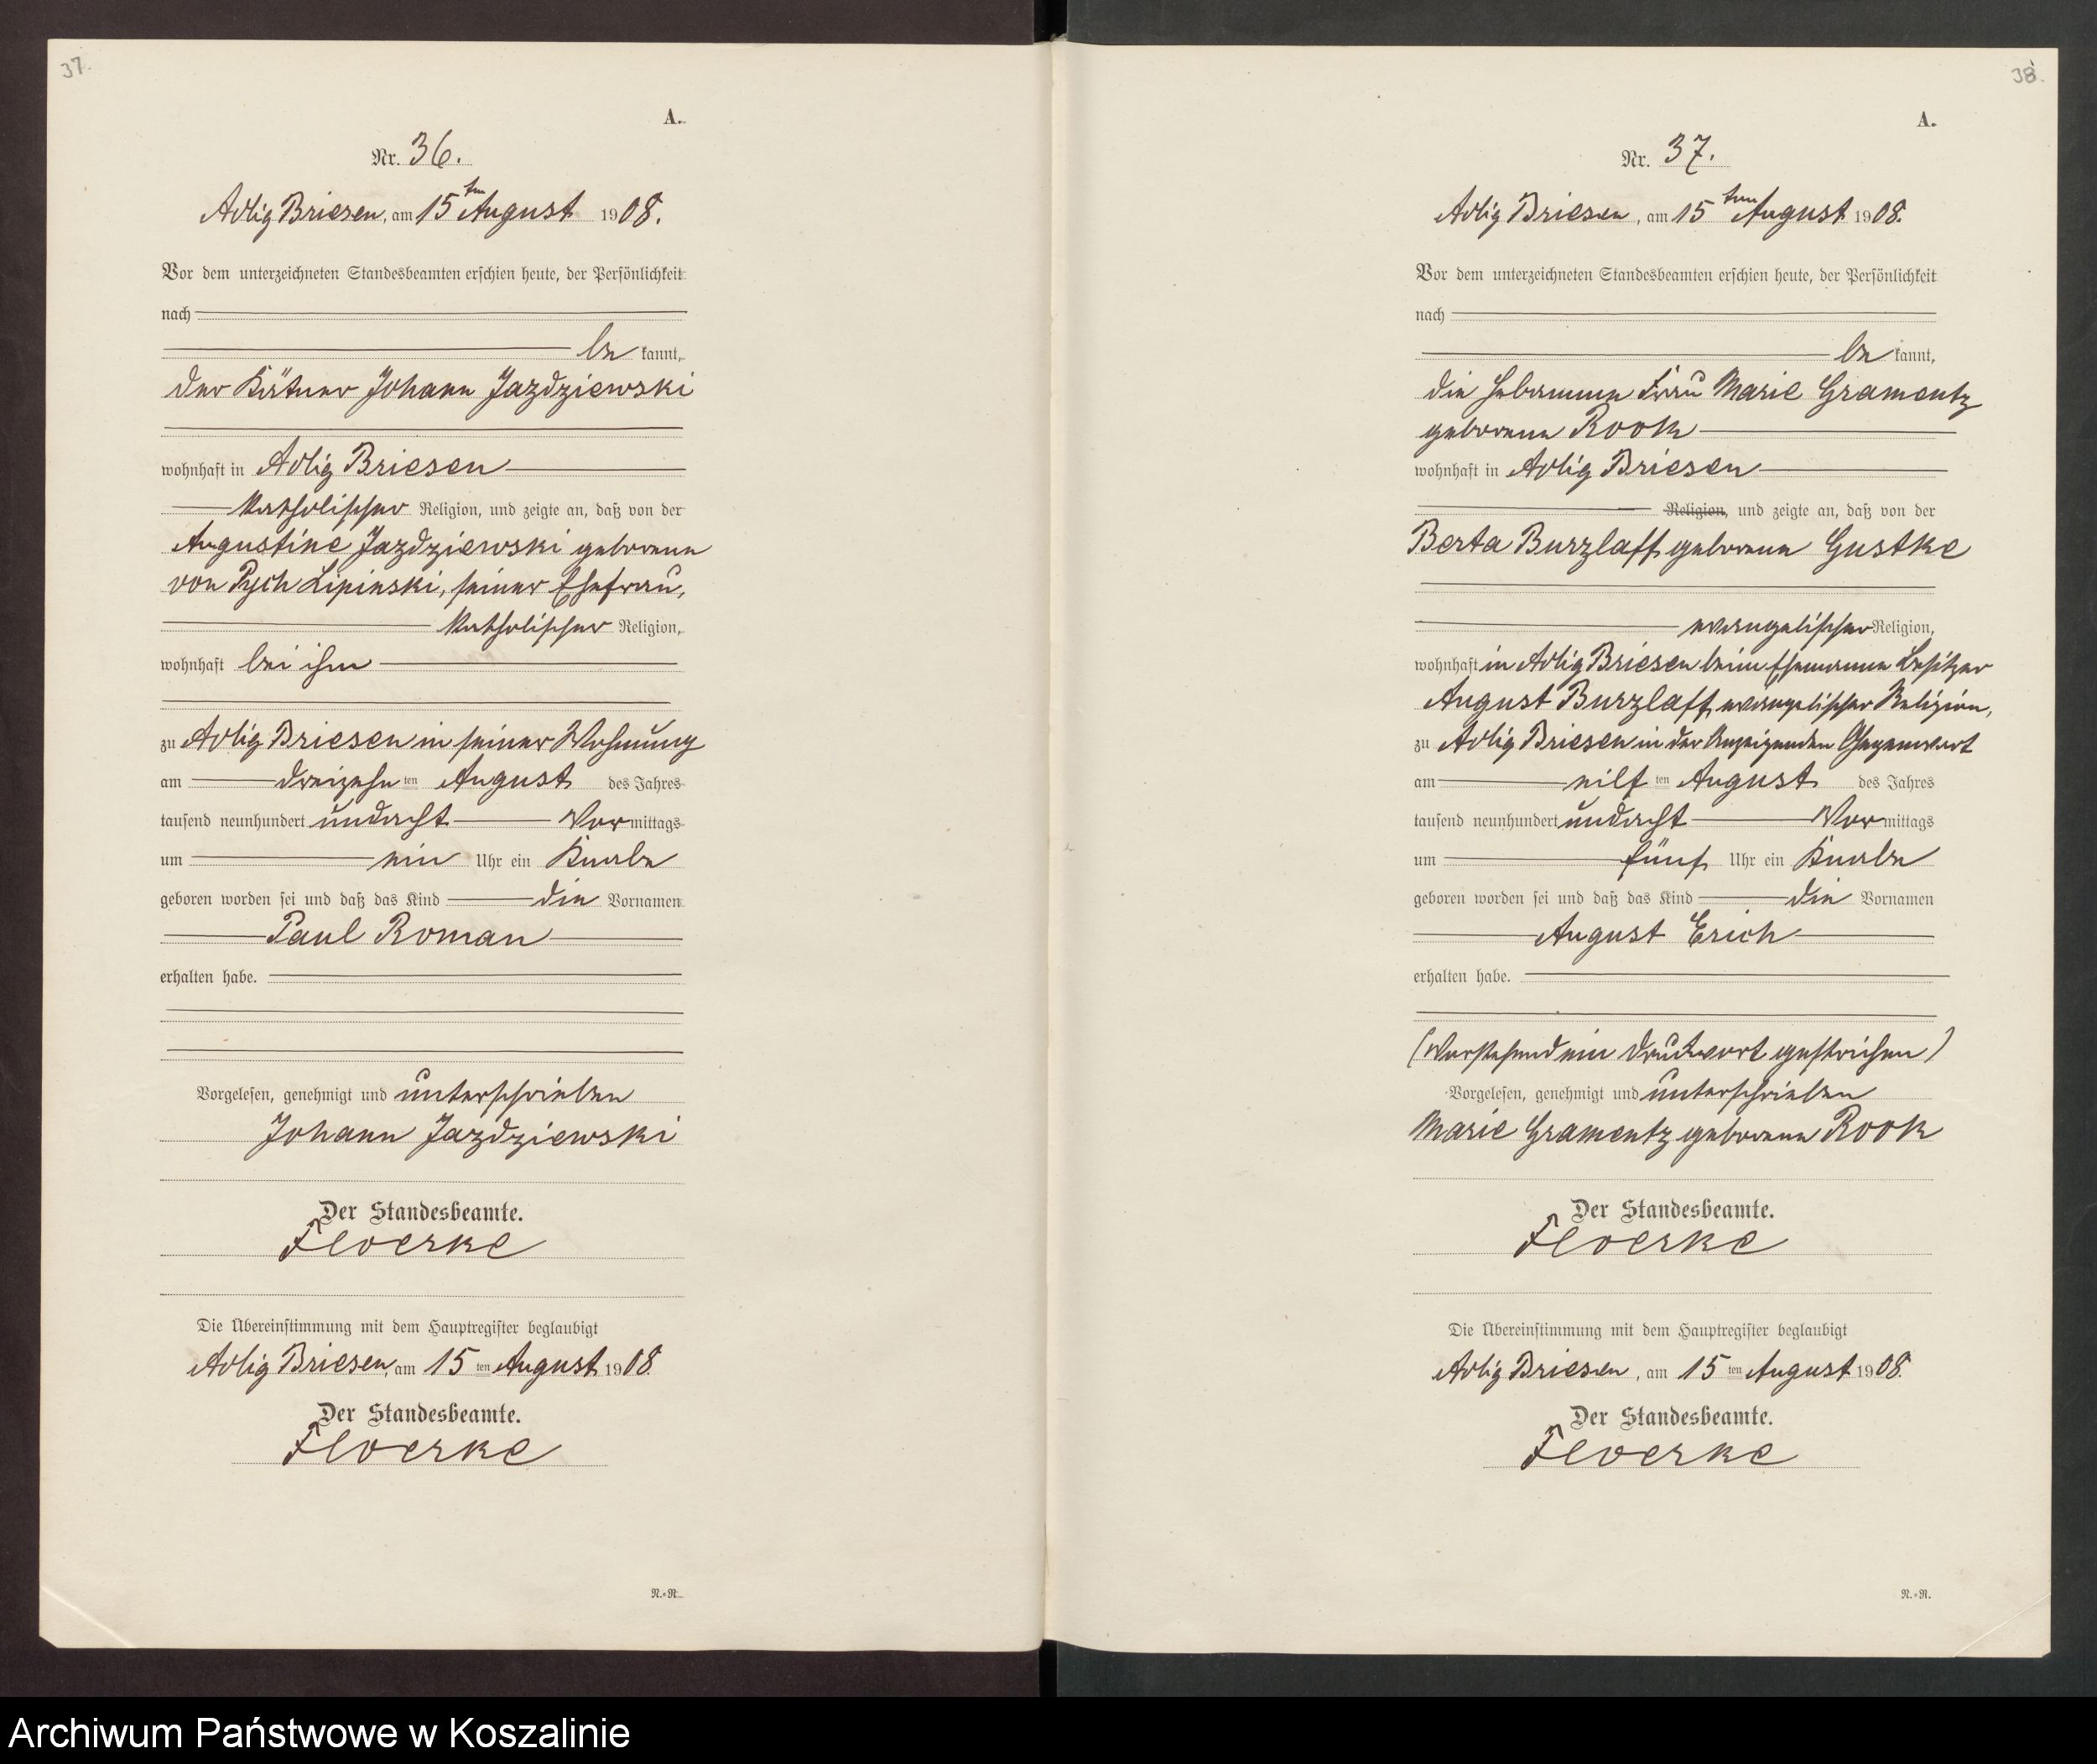 37.
A.
Nr. 36.
Adlig Briesen, am 15ten August 1908.
Vor dem unterzeichneten Standesbeamten erschien heute, der Persönlichkeit
nach
be kannt,
der Kätner Johann Jazdziewski
wohnhaft in Adlig Briesen
katholischer Religion, und zeigte an, daß von der
Augustine Jazdziewski geborene
von Pych Lipinski, seiner Ehefrau,
katholischer Religion,
wohnhaft bei ihm
zu Adlig Briesen in seiner Wohnung
am dreizehn ten August des Jahres
tausend neunhundert undacht Vormittags
um ein Uhr ein Knabe
geboren worden sei und daß das Kind die Vornamen
Paul Roman
erhalten habe.
Vorgelesen, genehmigt und unterschrieben
Johann Jazdziewski
Der Standesbeamte.
Floerke
Die Übereinstimmung mit dem Hauptregister beglaubigt
Adlig Briesen, am 15 ten August 1908
Der Standesbeamte.
Floerke
N.=R.
38.
A.
Nr. 37.
Adlig Briesen, am 15ten August 1908.
Vor dem unterzeichneten Standesbeamten erschien heute, der Persönlichkeit
nach
be kannt,
die Hebamme Frau Marie Gramentz
geborene Rook
wohnhaft in Adlig Briesen
Religion, und zeigte an, daß von der
Berta Burzlaff geborene Gustke
evangelischer Religion,
wohnhaft in Adlig Briesen beim Ehemanne Besitzer
August Burzlaff evangelischer Religion,
zu Adlig Briesen in der Anzeigenden Gegenwart
am eilf ten August des Jahres
tausend neunhundert undacht Vormittags
um fünf Uhr ein Knabe
geboren worden sei und daß das Kind die Vornamen
August Erich
erhalten habe.
(Vorstehend ein Druckwort gestrichen)
Vorgelesen, genehmigt und unterschrieben
Marie Gramentz geborene Rook
Der Standesbeamte.
Floerke
Die Übereinstimmung mit dem Hauptregister beglaubigt
Adlig Briesen, am 15 ten August 1908.
Der Standesbeamte.
Floerke
N.=R.
Archiwum Państwowe w Koszalinie